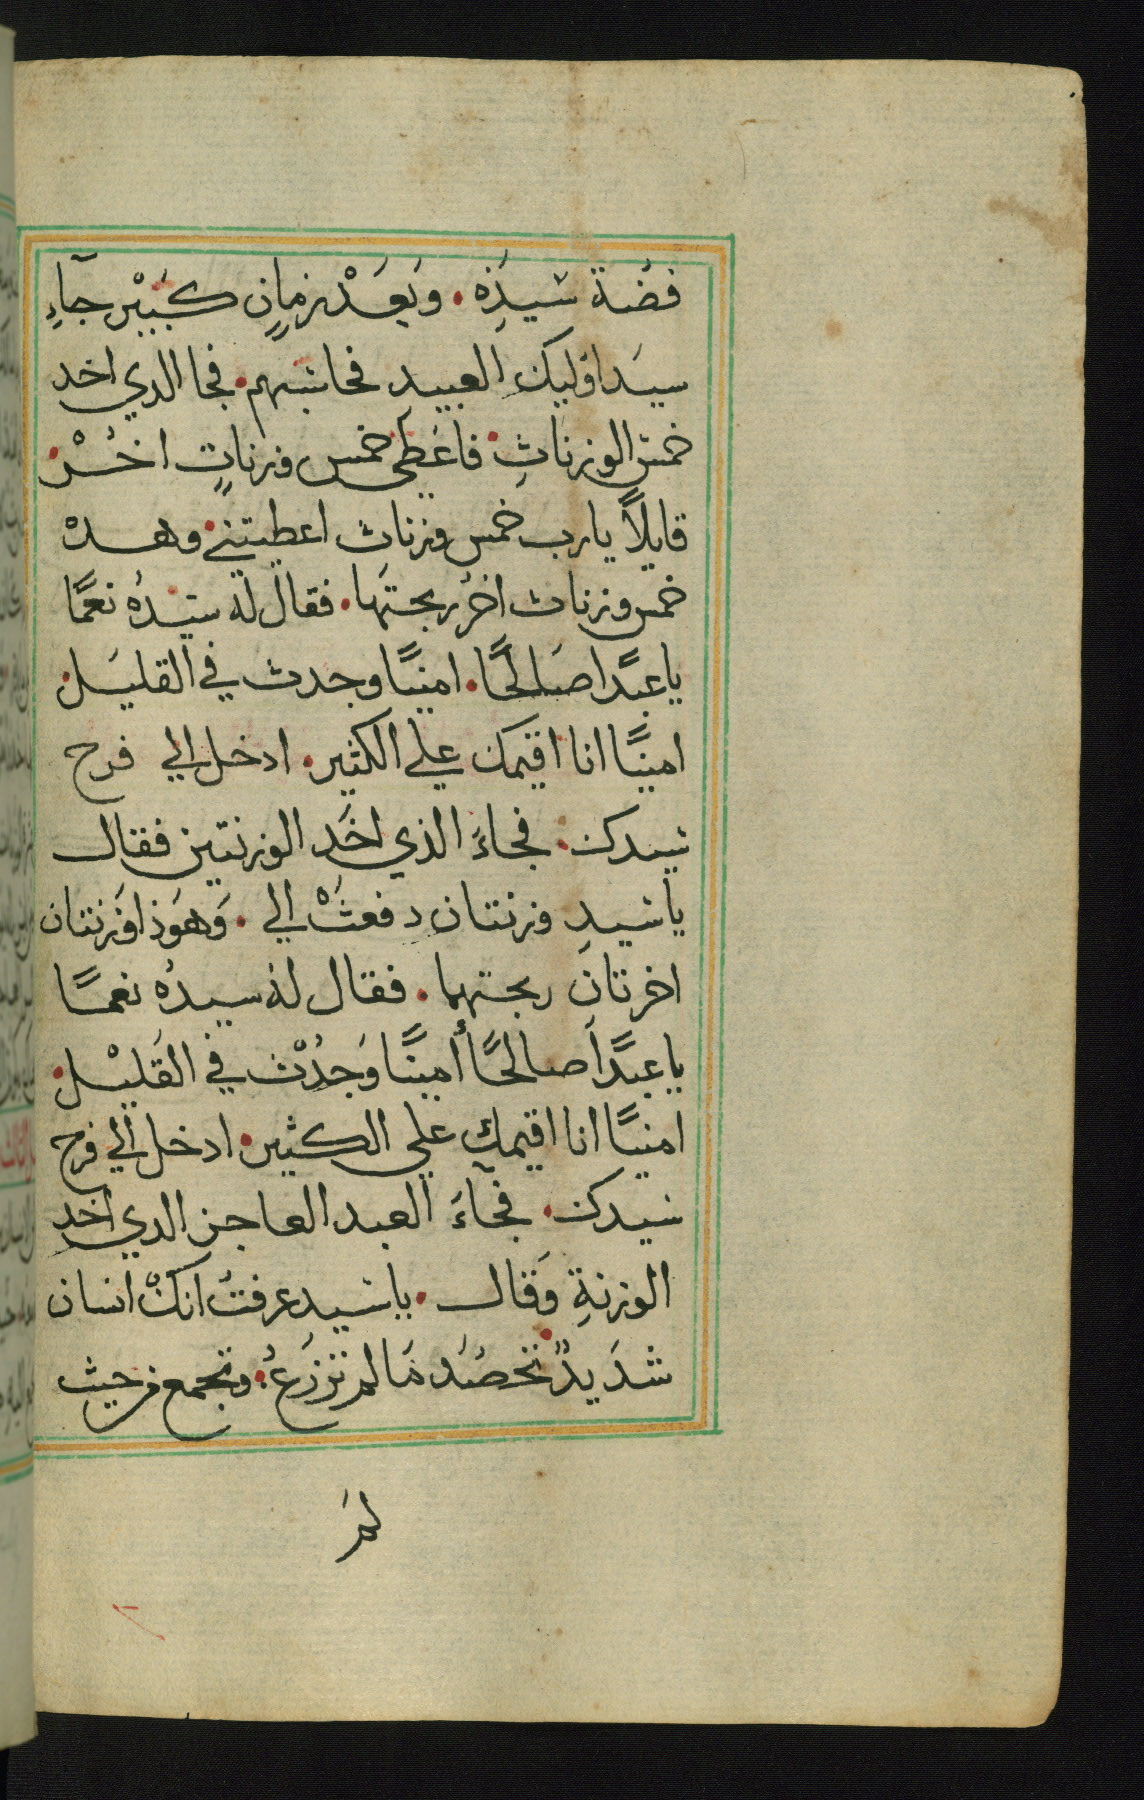 فضة سيده . وبعد زمان كبير جآء
سيد اوليك العبيد فحاسبهم . فجا الدي اخد
خمس الوزنات . فاعطي خمس وزنات اخر .
قايلاً يارب خمس وزنات اعطيتني . وهده
خمس وزنات اخر ربحتها . فقال له سيده نعمًا
ياعبدًا صالحًا . امينًا وجدت في القليل .
امينًا انا اقيمك علي الكثير . ادخل الي فرح
سيدك . فجاءَ الذي اخد الوزنتين فقال
ياسيد وزنتان دفعت الي . وهوذا وزنتان
اخرتان ربحتهما . فقال له سيده نعمًا
ياعبدًا صالحًا أمينًا وجدت في القليل .
امينًا انا اقيمك علي الكثير . ادخل الي فرح
سيدك . فجآءَ العبد العاجز الدي اخد
الوزنة وقال . ياسيد عرفت انك انسان
شديدٌ تحصد مالم تزرع . وتجمع من حيث
لم